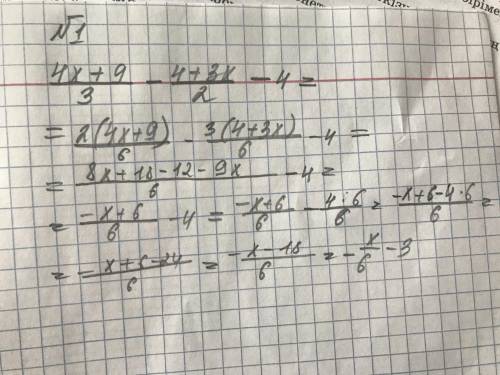 №1
(4x+9)/3 - (4+3x)/2 - 4 =
= 2(4x+9)/6 - 3(4+3x)/6 - 4 =
= (8x+18-12-9x)/6 - 4 =
= (-x+6)/6 - 4 = (-x+6)/6 - 4·6/6 = (-x+6-4·6)/6 =
= (-x+6-24)/6 = (-x-18)/6 = -x/6 - 3